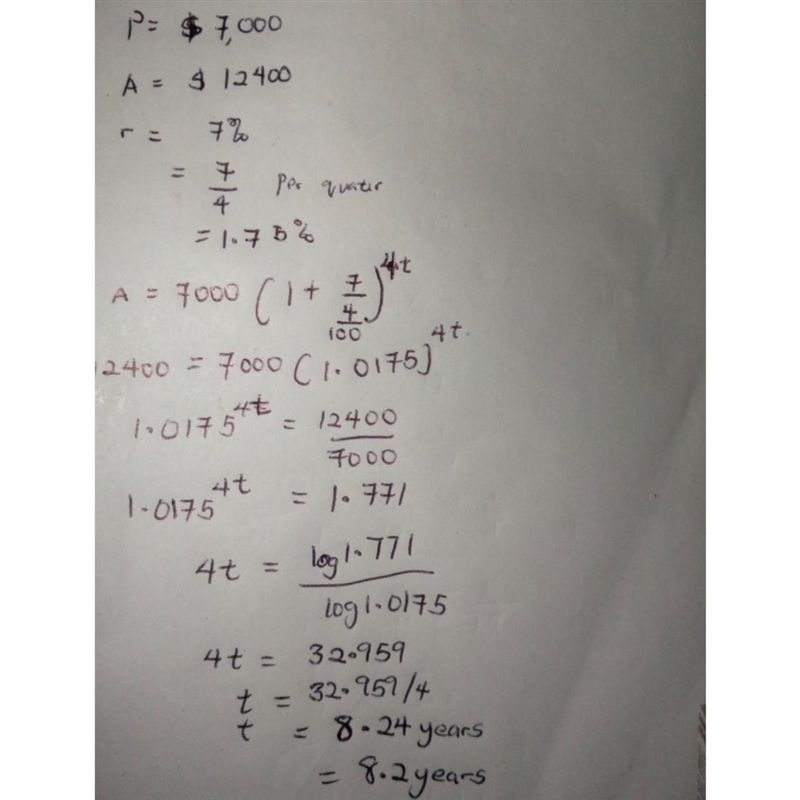 P = $ 7,000
A = $ 12400
r = 7%
= 7/4 per quater
= 1.75%
A = 7000 (1 + 7/4/100)^4t
12400 = 7000 (1.0175)^4t
1.0175^4t = 12400/7000
1.0175^4t = 1.771
4t = log1.771/log1.0175
4t = 32.959
t = 32.959/4
t = 8.24 years
= 8.2 years